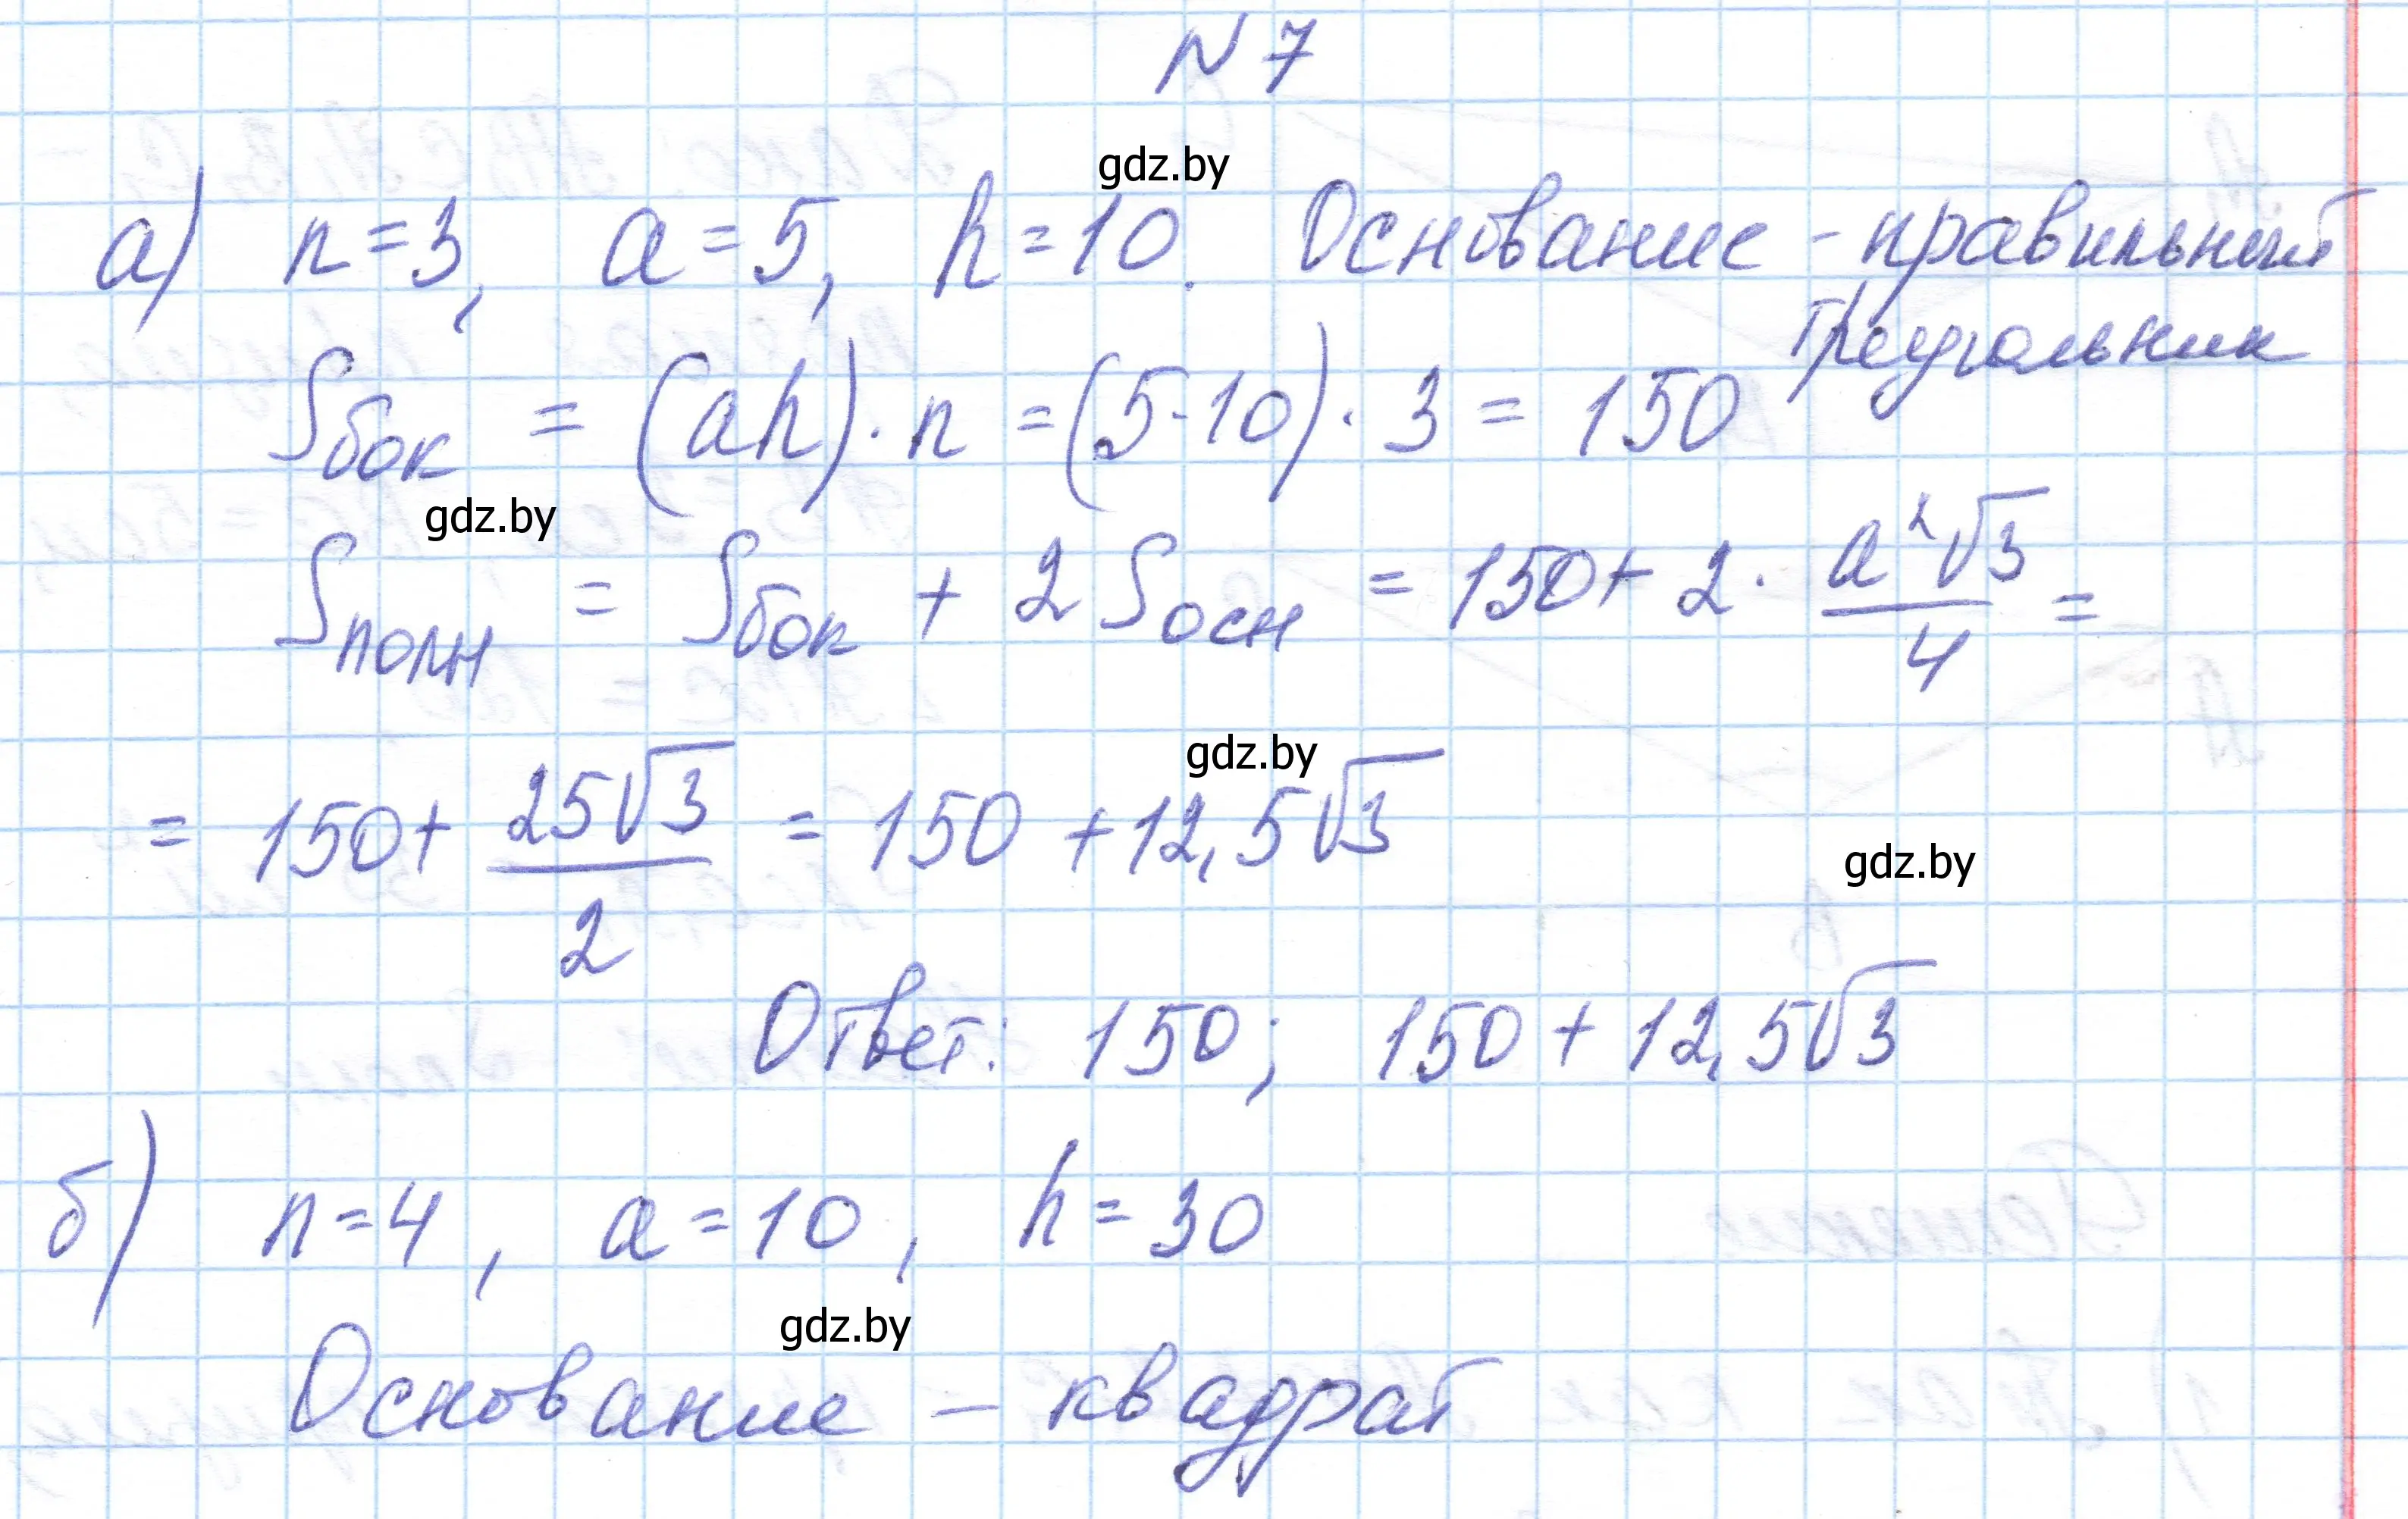 N 7
gdz.by
а) n=3, a=5, h=10. Основание - правильный
треугольник
Sбок = (ah)·n = (5·10)·3 = 150
gdz.by
Sполн = Sбок + 2Sосн = 150 + 2·a²√3/4 =
gdz.by
= 150 + 25√3/2 = 150 + 12,5√3
gdz.by
Ответ: 150; 150 + 12,5√3
б) n=4, a=10, h=30
gdz.by
Основание – квадрат